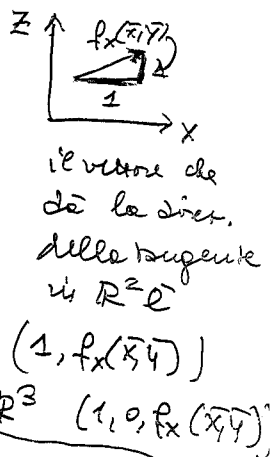 Z
fₓ(x̄,ȳ)
1
X
il vettore che
dà la direz.
della tangente
in ℝ² è
(1, fₓ(x̄,ȳ))
ℝ³ (1, 0, fₓ(x̄,ȳ))